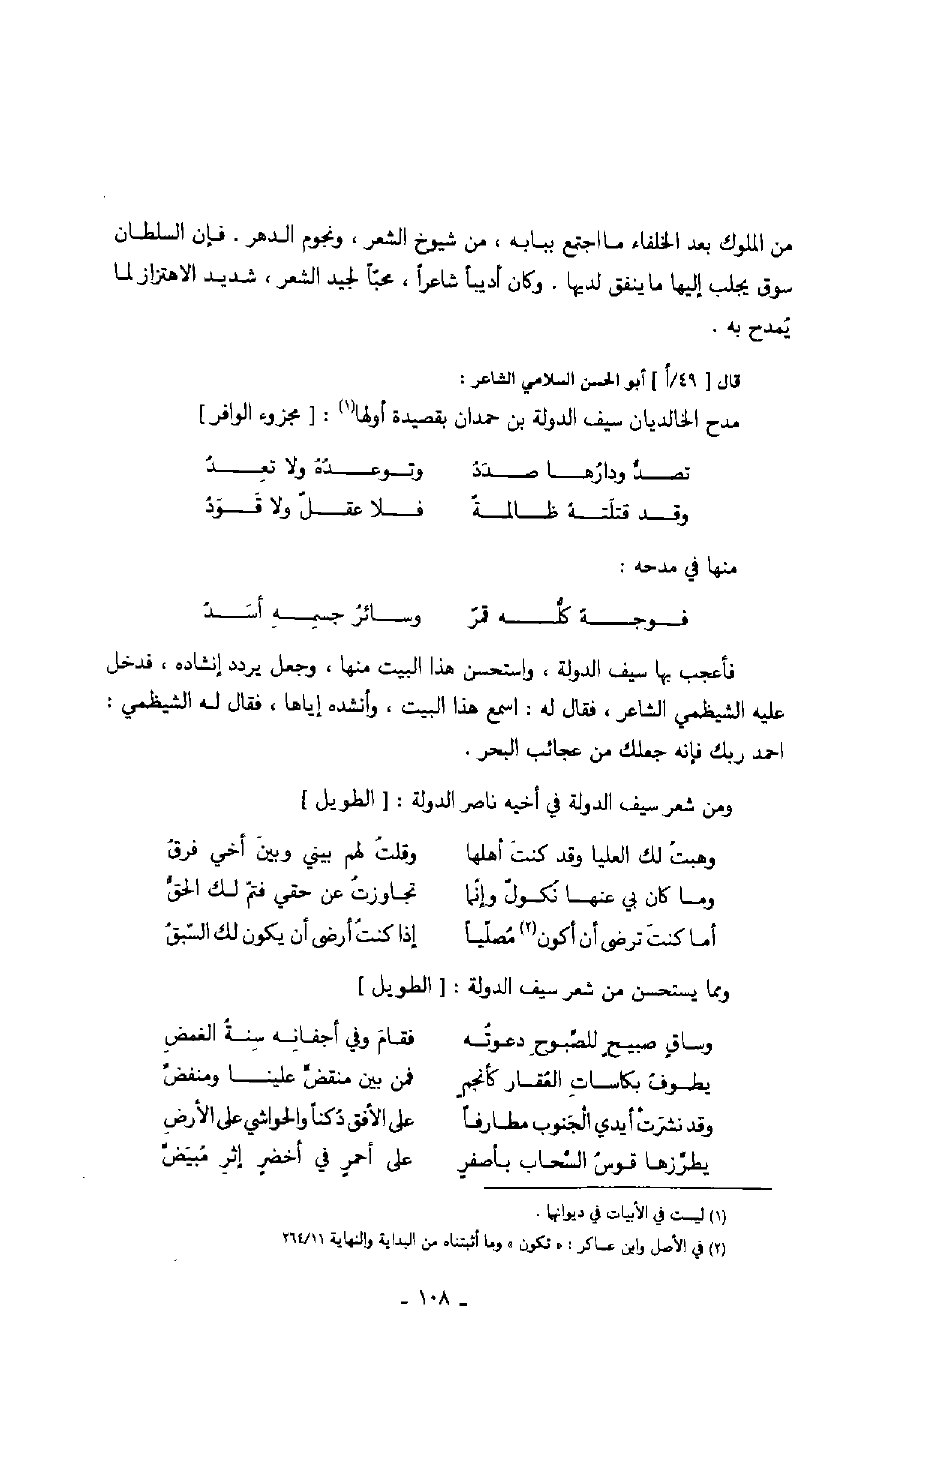 من الملوك بعد الخلفاء ما اجتمع ببابه ، من شيوخ الشعر ، ونجوم الدهر . فإن السلطان
سوق يجلب إليها ما ينفق لديها . وكان أديباً شاعراً ، محبّاً لجيد الشعر ، شديد الاهتزاز لما
يُمدح به .
قال [ ٤٩/أ ] أبو الحسن السلامي الشاعر :
مدح الخالديان سيف الدولة بن حمدان بقصيدة أولها(١) : [ مجزوء الوافر ]
تصــدُّ ودارُهــا صــدَدُ وتــوعــدُهُ ولا تعــدُ
وقــد قتلَتــهُ ظــالمــةً فــلا عقــلٌ ولا قَــوَدُ
منها في مدحه :
فــوجــهٌ كلُّــه قمرٌ وســائرُ جسمِــهِ أسَــدُ
فأعجب بها سيف الدولة ، واستحسن هذا البيت منها ، وجعل يردد إنشاده ، فدخل
عليه الشيظمي الشاعر ، فقال له : اسمع هذا البيت ، وأنشده إياها ، فقال له الشيظمي :
احمد ربك فإنه جعلك من عجائب البحر .
ومن شعر سيف الدولة في أخيه ناصر الدولة : [ الطويل ]
وهبتُ لك العليا وقد كنتَ أهلها وقلتُ لهم بيني وبينَ أخي فرقُ
ومــا كان بي عنهــا نُكــولٌ وإنّما تجاوزتُ عن حقي فتمّ لــك الحقُّ
أما كنتَ ترضى أن أكون(٢) مُصلّياً إذا كنتُ أرضى أن يكون لك السّبقُ
ومما يستحسن من شعر سيف الدولة : [ الطويل ]
وســاقٍ صبيحٍ للصَّبوحِ دعوتُــه فقــامَ وفي أجفــانِــه سِنــةُ الغمضِ
يطــوفُ بكاســاتِ العُقــار كأنجمٍ فمن بين منقضٍّ علينــا ومنفضِّ
وقد نشرَتْ أيدي الجَنوب مطــارفاً على الأفق دُكناً والحواشي على الأرضِ
يطرّزهــا قــوسُ السَّحاب بــأصفرٍ على أحمرٍ في أخضرٍ إثرِ مُبيَضِّ
(١) ليست في الأبيات في ديوانها .
(٢) في الأصل وابن عساكر : « تكون » وما أثبتناه من البداية والنهاية ٢٦٤/١١
ـ ١٠٨ ـ